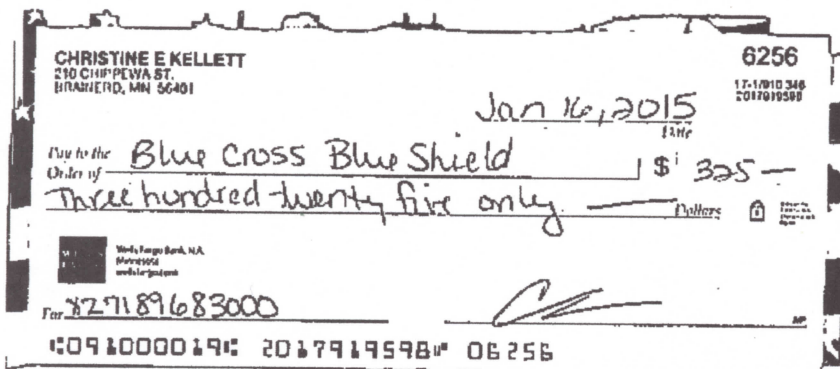 CHRISTINE E KELLETT 6256
210 CHIPPEWA ST.
BRAINERD, MN 56401
17-1/910 346
2017919598
Jan 16, 2015
Date
Pay to the
Order of Blue Cross Blue Shield $ 325 —
Three hundred twenty five only —— Dollars
Wells Fargo Bank, N.A.
Minnesota
wellsfargo.com
For 827189683000
MP
⑆091000019⑆ 2017919598⑈ 06256